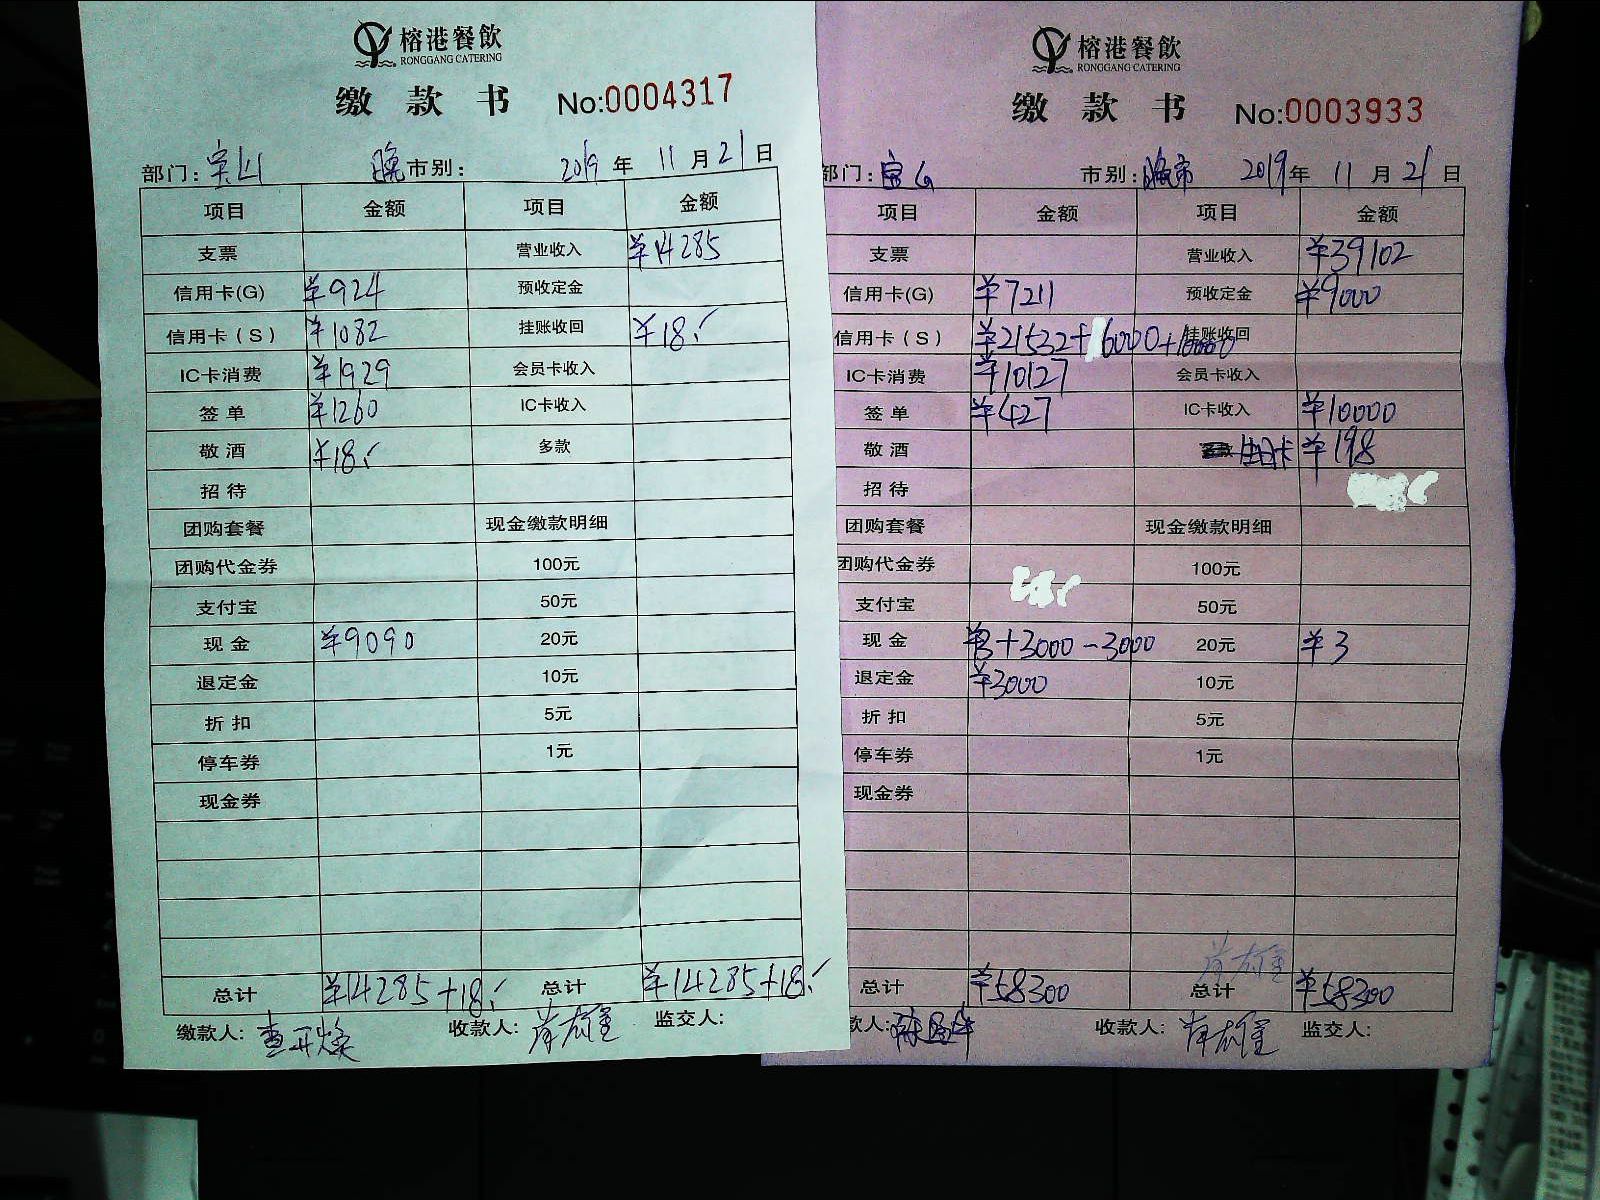 榕港餐飲
RONGGANG CATERING
缴款书 No:0004317
部门: 宝山 晚市别: 2019年11月21日
项目 金额 项目 金额
支票 营业收入 ¥14285
信用卡(G) ¥924 预收定金
信用卡(S) ¥1082 挂账收回 ¥18.
IC卡消费 ¥1929 会员卡收入
签单 ¥1260 IC卡收入
敬酒 ¥18. 多款
招待
团购套餐 现金缴款明细
团购代金券 100元
支付宝 50元
现金 ¥9090 20元
退定金 10元
折扣 5元
停车券 1元
现金券
总计 ¥14285+18. 总计 ¥14285+18.
缴款人: 收款人: 监交人:
榕港餐飲
RONGGANG CATERING
缴款书 No:0003933
部门: 宝山 市别: 晚市 2019年11月21日
项目 金额 项目 金额
支票 营业收入 ¥39102
信用卡(G) ¥7211 预收定金 ¥9000
信用卡(S) ¥21532+6000+10000 挂账收回
IC卡消费 ¥10127 会员卡收入
签单 ¥427 IC卡收入 ¥10000
敬酒 ¥198
招待
团购套餐 现金缴款明细
团购代金券 100元
支付宝 50元
现金 ¥3+3000-3000 20元 ¥3
退定金 ¥3000 10元
折扣 5元
停车券 1元
现金券
总计 ¥58300 总计 ¥58300
款人: 收款人: 监交人: